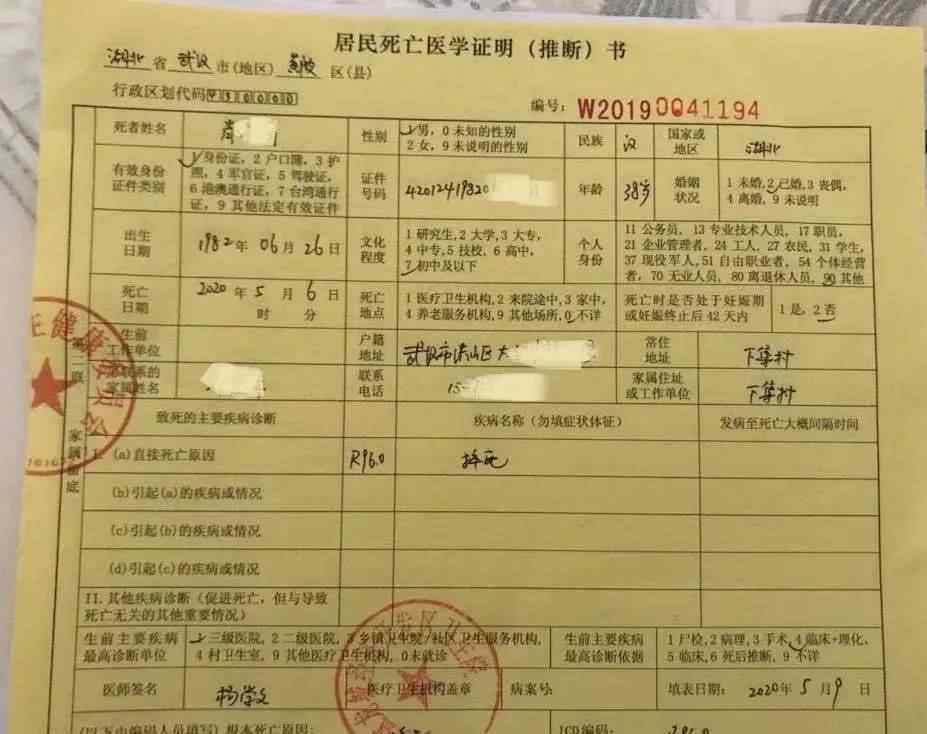 居民死亡医学证明（推断）书
湖北 省 武汉 市(地区) 黄陂 区(县)
行政区划代码
编号: W20190041194
死者姓名 性别 1 男, 0 未知的性别 民族 汉 国家或 湖北
2 女, 9 未说明的性别 地区
有效身份 1 身份证, 2 户口簿, 3 护 证件 42012419820 年龄 38岁 婚姻 1 未婚, 2 已婚, 3 丧偶,
证件类别 照, 4 军官证, 5 驾驶证, 号码 状况 4 离婚, 9 未说明
6 港澳通行证, 7 台湾通行
证, 9 其他法定有效证件
出生 1982 年 06 月 26 日 文化 1 研究生, 2 大学, 3 大专, 个人 11 公务员, 13 专业技术人员, 17 职员,
日期 程度 4 中专, 5 技校, 6 高中, 身份 21 企业管理者, 24 工人, 27 农民, 31 学生,
7 初中及以下 37 现役军人, 51 自由职业者, 54 个体经营
者, 70 无业人员, 80 离退休人员, 90 其他
死亡 2020 年 5 月 6 日 死亡 1 医疗卫生机构, 2 来院途中, 3 家中, 死亡时是否处于妊娠期 1 是, 2 否
日期 时 分 地点 4 养老服务机构, 9 其他场所, 0 不详 或妊娠终止后 42 天内
生前 户籍 武汉市洪山区 常住
工作单位 地址 地址
联系的 联系 15 家属住址
家属姓名 电话 或工作单位
第二联
家属
底
致死的主要疾病诊断 疾病名称（勿填症状体征） 发病至死亡大概间隔时间
I. (a)直接死亡原因 R96.0 猝死
(b)引起(a)的疾病或情况
(c)引起(b)的疾病或情况
(d)引起(c)的疾病或情况
II. 其他疾病诊断（促进死亡，但与导致
死亡无关的其他重要情况）
生前主要疾病 1 三级医院, 2 二级医院, 3 乡镇卫生院/社区卫生服务机构, 生前主要疾病 1 尸检, 2 病理, 3 手术, 4 临床+理化,
最高诊断单位 4 村卫生室, 9 其他医疗卫生机构, 0 未就诊 最高诊断依据 5 临床, 6 死后推断, 9 不详
医师签名 杨学文 医疗卫生机构盖章 病案号: 填表日期: 2020 年 5 月 9 日
(以下由编码人员填写) 根本死亡原因: ICD 编码: